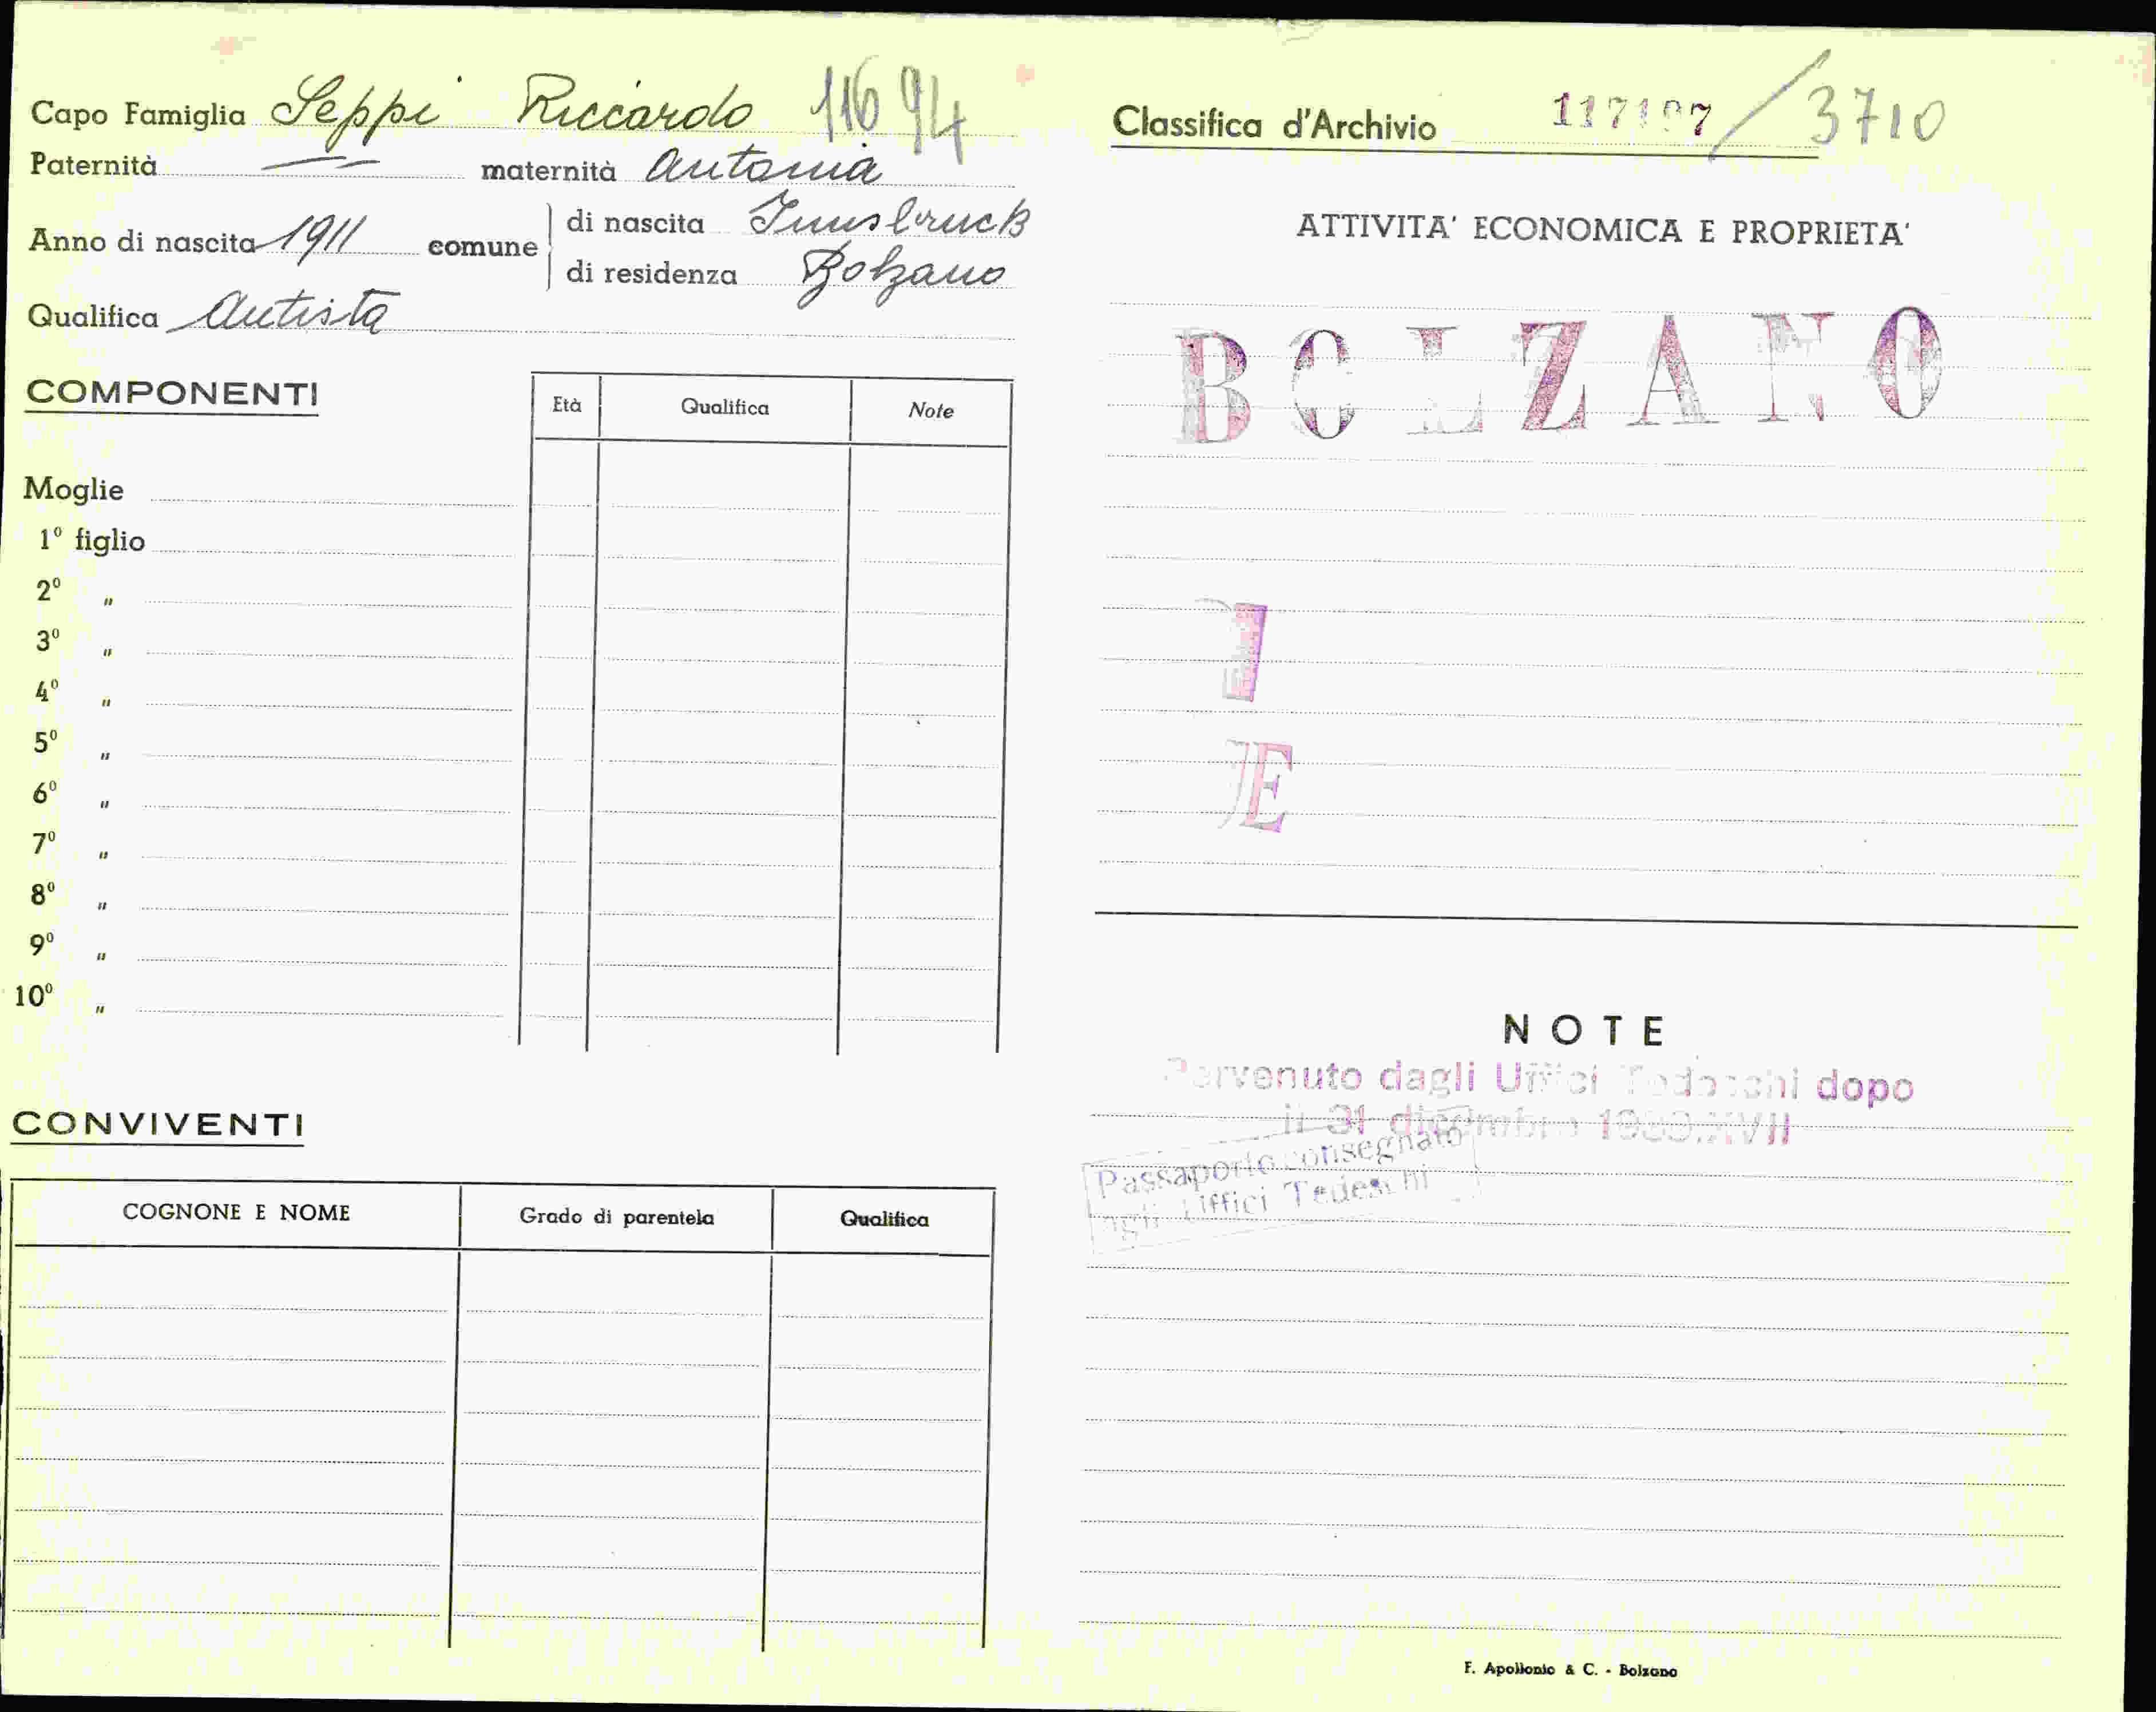 Capo Famiglia Seppi Riccardo 11694
Paternità — maternità Antonia
Anno di nascita 1911 comune di nascita Innsbruck
di residenza Bolzano
Qualifica Autista
COMPONENTI
Età Qualifica Note
Moglie
1º figlio
2º "
3º "
4º "
5º "
6º "
7º "
8º "
9º "
10º "
CONVIVENTI
COGNONE E NOME Grado di parentela Qualifica
Classifica d'Archivio / 3710
ATTIVITA' ECONOMICA E PROPRIETA'
BOLZANO
I
E
NOTE
Pervenuto dagli Uffici Tedeschi dopo
il 31 dicembre 1939.XVII
Passaporto consegnato
agli Uffici Tedeschi
F. Apollonio & C. - Bolzano